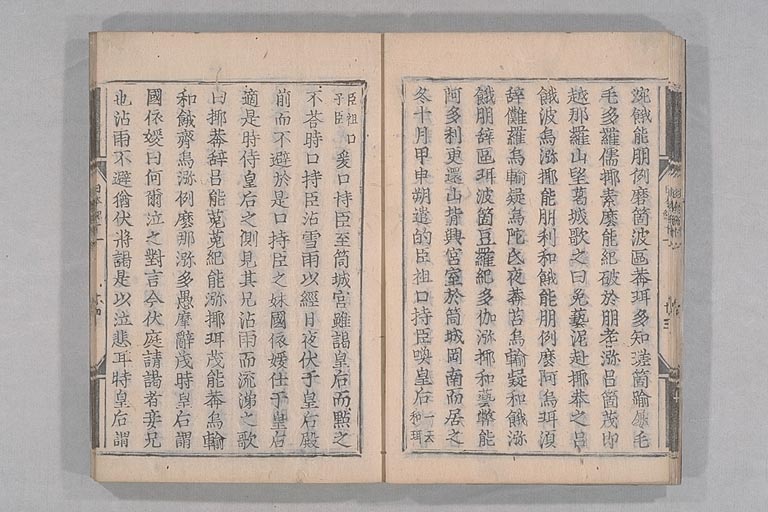 涴餓能朋例磨箇波區莽珥多知瑳箇踰屢毛
毛多羅儒揶素麼能紀破於朋耆瀰呂箇茂即
越那羅山望葛城歌之曰兔藝泥赴揶莽之呂
餓波烏瀰揶能朋利和餓能朋例麼阿烏珥須
辭儺羅烏輸疑烏陀氐夜莽苔烏輸疑和餓瀰
餓朋辭區珥波箇豆羅紀多伽瀰揶和藝弊能
阿多利更還山背興宮室於筒城岡南而居之
冬十月甲申朔遣的臣祖口持臣喚皇后一云和珥
臣祖口子臣爰口持臣至筒城宮雖謁皇后而默之
不荅時口持臣沾雪雨以經月夜伏于皇后殿
前而不避於是口持臣之妹國依媛仕于皇后
適是時侍皇后之側見其兄沾雨而流涕之歌
曰揶莽辭呂能菟菟紀能瀰揶珥茂能莽烏輸
和餓齊烏瀰例麼那瀰多愚摩辭茂時皇后謂
國依媛曰何爾泣之對言今伏庭請謁者妾兄
也沾雨不避猶伏將謁是以泣悲耳時皇后謂